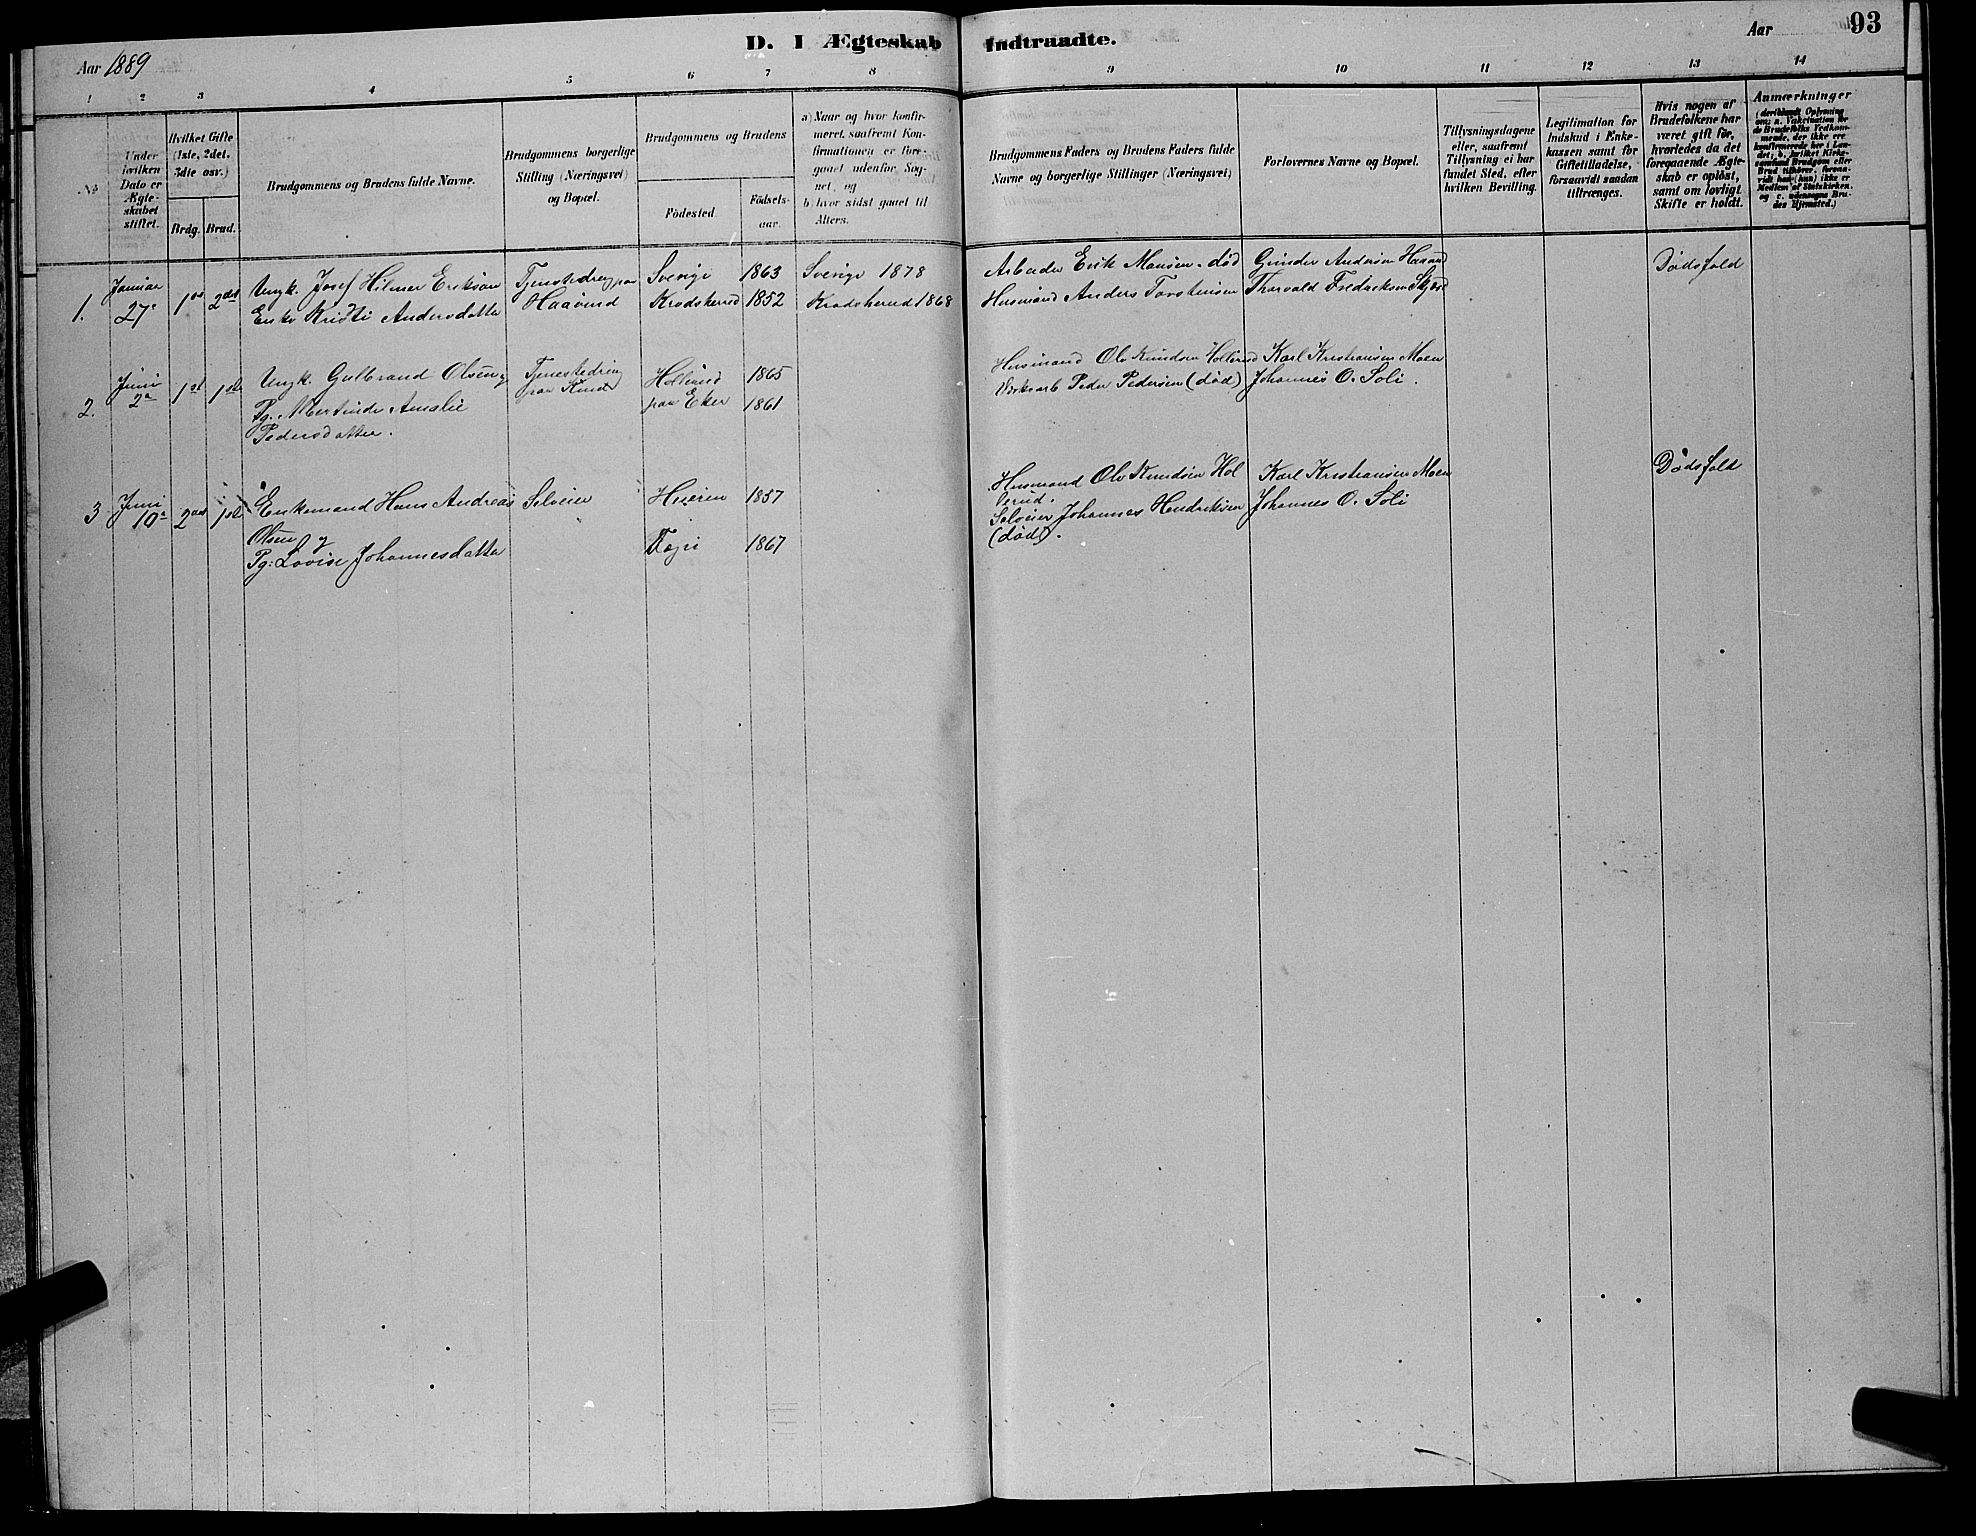 D. I Ægteskab Indtraadte.
Aar 1889
Aar
93
1 2 3 4 5 6 7 8 9 10 11 12 13 14
No
Under
hvilken
Dato er
Ægte-
skabet
stiftet.
Hvilket Gifte
(1ste, 2det,
3die osv.)
Brdg. Brud.
Brudgommens og Brudens fulde Navne.
Brudgommens borgerlige
Stilling (Næringsvei)
og Bopæl.
Brudgommens og Brudens
Födested.
Födsels-
aar.
a) Naar og hvor konfir-
meret, saafremt Kon-
firmationen er fore-
gaaet udenfor Sog-
net, og
b) hvor sidst gaaet til
Alters.
Brudgommens Faders og Brudens Faders fulde
Navne og borgerlige Stillinger (Næringsvei)
Forlovernes Navne og Bopæl.
Tillysningsdagene
eller, saafremt
Tillysning ei har
fundet Sted, efter
hvilken Bevilling.
Legitimation for
Indskud i Enke-
kassen samt for
Giftetilladelse,
forsaavidt saadan
tiltrænges.
Hvis nogen af
Brudefolkene har
været gift för,
hvorledes da det
foregaaende Ægte-
skab er oplöst,
samt om lovligt
Skifte er holdt.
Anmærkninger
(deriblandt Oplysning
om: a. Vakcination for
de Brudefolks Vedkom-
mende, der ikke ere
konfirmerede her i Lan-
det; b. hvilket Kirke-
samfund Brudgom eller
Brud tilhører, forsaa-
vidt han (hun) ikke er
Medlem af Statskirken,
og c. udensogns Bru-
des Hjemsted.)
1. Januar 27de 1ste 2det
Ungk. Josef Hilmer Erikson
Enke Kristi Andersdatter
Tjenestedreng paa
Haavind
Sverige 1863 Sverige 1878
Krodsherred 1852 Krodsherred 1868
Arbeider Erik Monsen - död
Husmand Anders Torstensen
Gunder Andersen
Thorvald Fredriksen
Dødsfald
2. Juni 2den 1ste 1ste
Ungk. Gulbrand Olsen og
Pg. Mertinde Amalie
Pedersdatter.
Tjenestedreng
paa Rund
Hollerud 1865
paa Eker 1861
Husmand Ole Knudsen Hollerud
Peder Pedersen (död)
Karl Kristiansen Moen
Johannes O. Soli.
3 Juni 10de 2det 1ste
Enkemand Hans Andreas
Olsen og
Pg: Lovise Johannesdatter
Selveier
1857
1867
Husmand Ole Knudsen Hol
lerud.
Selveier Johannes Hendriksen
(död).
Karl Kristiansen Moen
Johannes O. Soli
Dødsfald